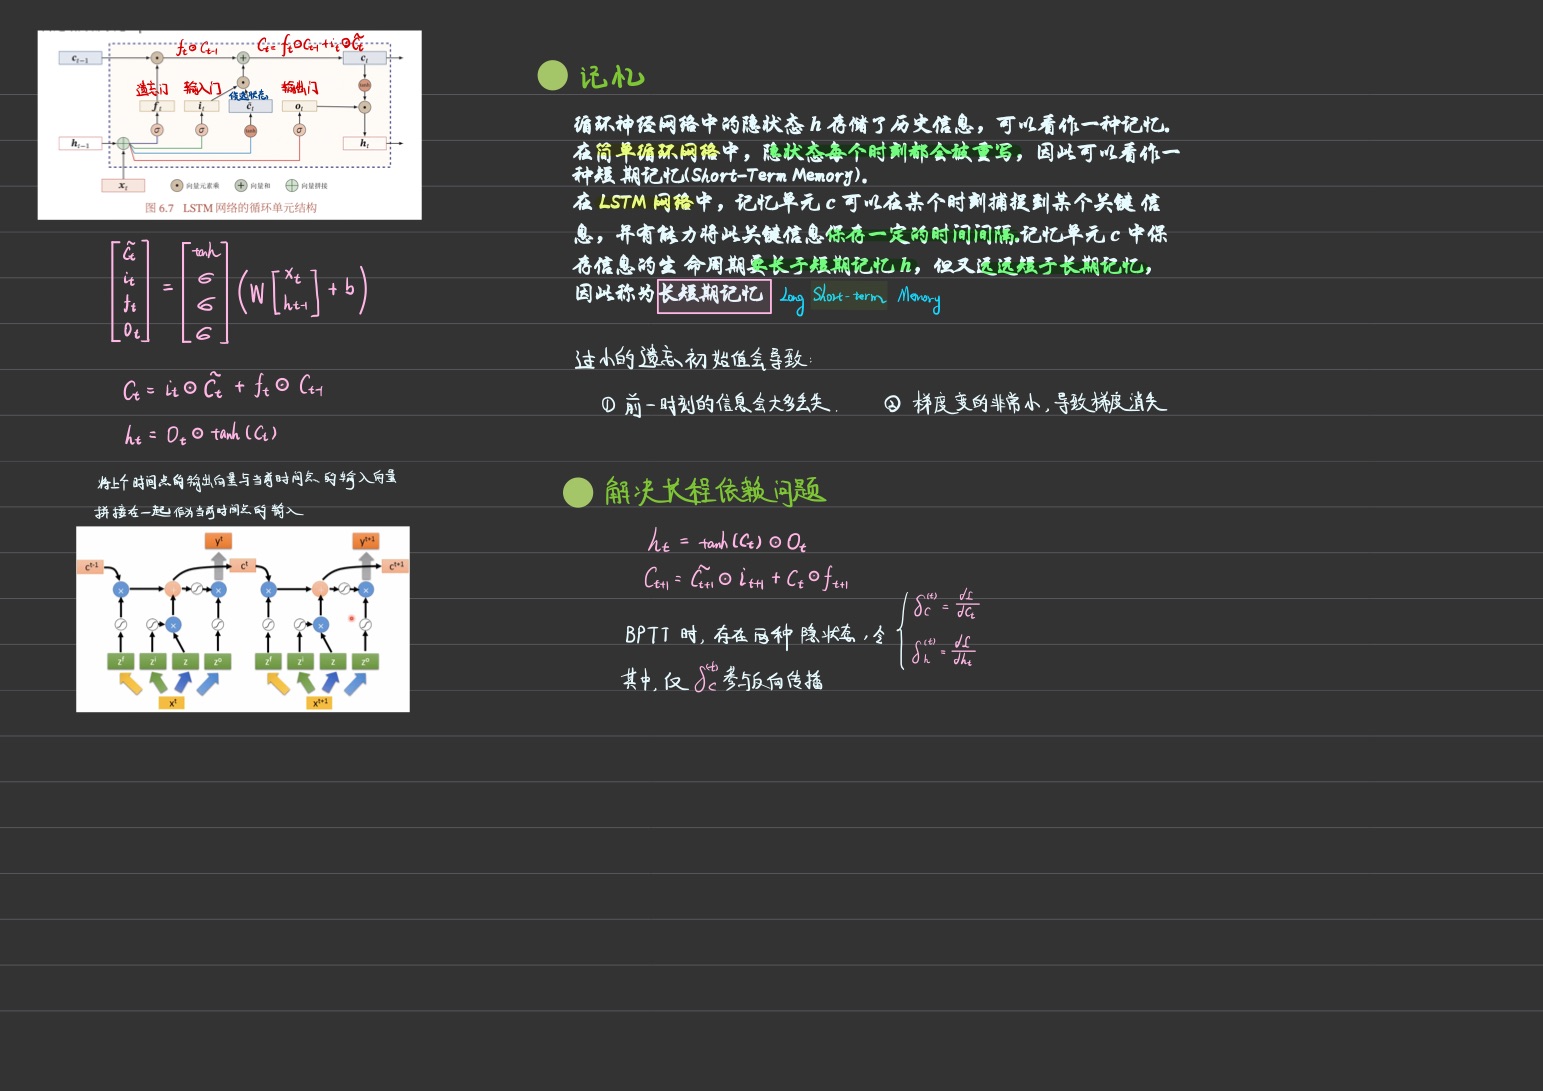 f_t⊙C_{t-1}
C_t=f_t⊙C_{t-1}+i_t⊙C̃_t
c_{t-1}
c_t
tanh
遗忘门
输入门
候选状态
输出门
f_t
i_t
c̃_t
o_t
σ
σ
tanh
σ
h_{t-1}
h_t
x_t
向量元素乘
向量和
向量拼接
图 6.7 LSTM 网络的循环单元结构
[C̃_t i_t f_t O_t] = [tanh σ σ σ] (W [x_t h_{t-1}] + b)
C_t = i_t ⊙ C̃_t + f_t ⊙ C_{t-1}
h_t = O_t ⊙ tanh(C_t)
将上个时间点的输出向量与当前时间点的输入向量
拼接在一起作为当前时间点的输入
y^t
y^{t+1}
c^{t-1}
c^t
c^{t+1}
z^f z^i z z^o
z^f z^i z z^o
x^t
x^{t+1}
记忆
循环神经网络中的隐状态 h 存储了历史信息，可以看作一种记忆。
在简单循环网络中，隐状态每个时刻都会被重写，因此可以看作一
种短 期记忆(Short-Term Memory)。
在 LSTM 网络中，记忆单元 c 可以在某个时刻捕捉到某个关键 信
息，并有能力将此关键信息保存一定的时间间隔。记忆单元 c 中保
存信息的生 命周期要长于短期记忆 h，但又远远短于长期记忆，
因此称为长短期记忆 Long Short-term Memory
过小的遗忘初始值会导致:
① 前一时刻的信息会大多丢失. ② 梯度变的非常小,导致梯度消失
解决长程依赖问题
h_t = tanh(C_t) ⊙ O_t
C_{t+1} = C̃_{t+1} ⊙ i_{t+1} + C_t ⊙ f_{t+1}
BPTT 时, 存在两种 隐状态, 令 { δ_C^{(t)} = dL/dC_t
δ_h^{(t)} = dL/dh_t
其中, 仅 δ_C^{(t)} 参与反向传播